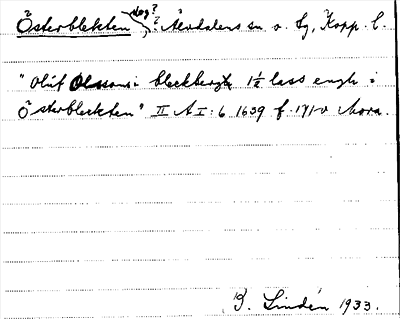 Österblekten slog? i Älvdalens sn o. tg, Kopp. l.
"Oluf Olssons i bleckberg 1½ lass engh i
Österbleckten" II A I: 6 1639 f. 171 v Mora.
B. Lindén 1933.